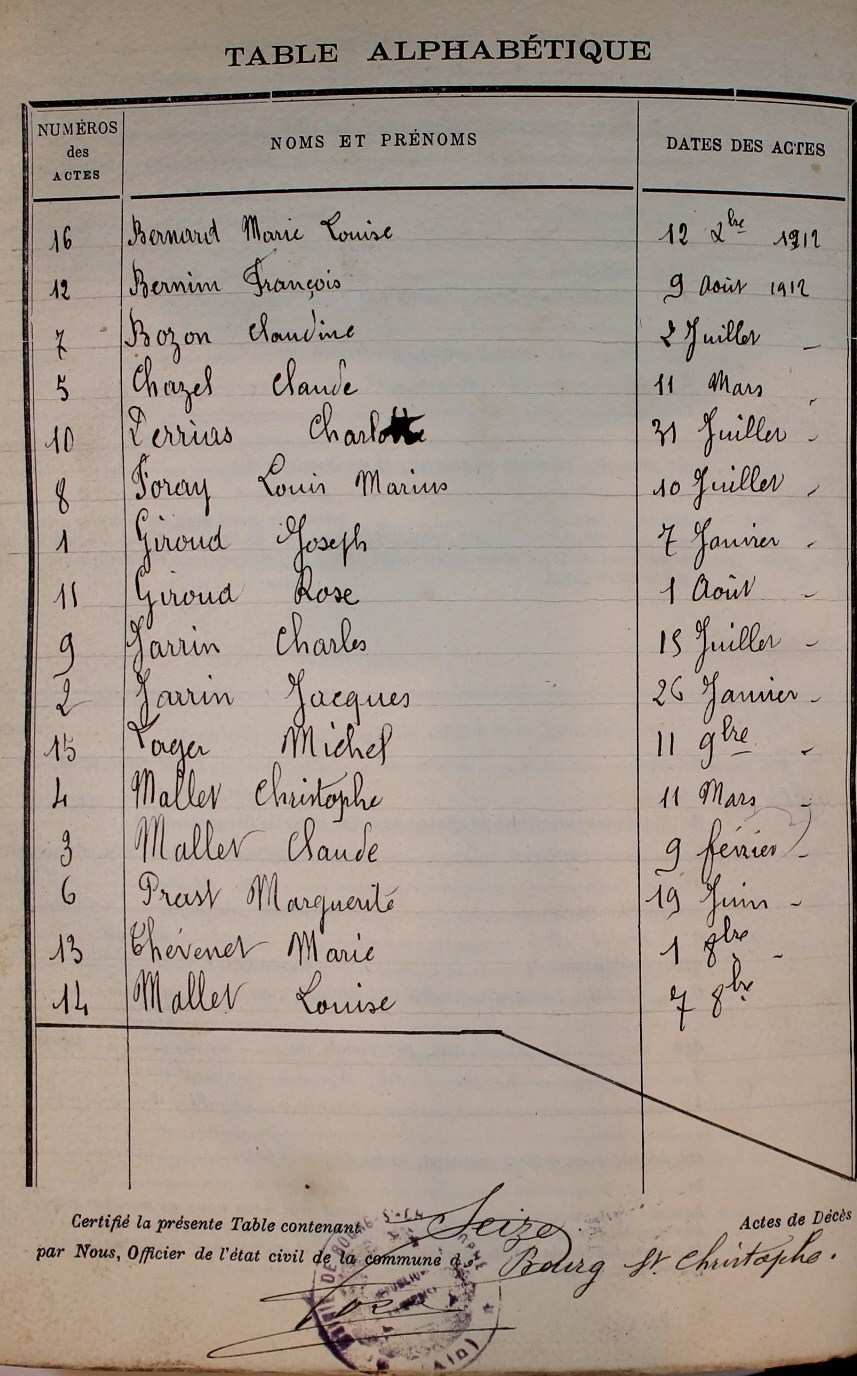 TABLE ALPHABÉTIQUE
NUMÉROS des ACTES NOMS ET PRÉNOMS DATES DES ACTES
16 Bernard Marie Louise 12 Xbre 1912
12 Bernin François 9 Août 1912
7 Bozon Claudine 2 Juillet _
5 Chazel Claude 11 Mars
10 Perrias Charlotte 31 Juillet -
8 Foray Louis Marius 10 Juillet -
1 Giroud Joseph 7 Janvier -
11 Giroud Rose 1 Août -
9 Jarrin Charles 15 Juillet -
2 Jarrin Jacques 26 Janvier -
15 Lager Michel 11 9bre -
4 Mallet Christophe 11 Mars -
3 Mallet Claude 9 février -
6 Prast Marguerite 19 Juin -
13 Thévenet Marie 1 8bre -
14 Mallet Louise 7 8bre
Certifié la présente Table contenant Seize Actes de Décès
par Nous, Officier de l'état civil de la commune de Bourg St Christophe.